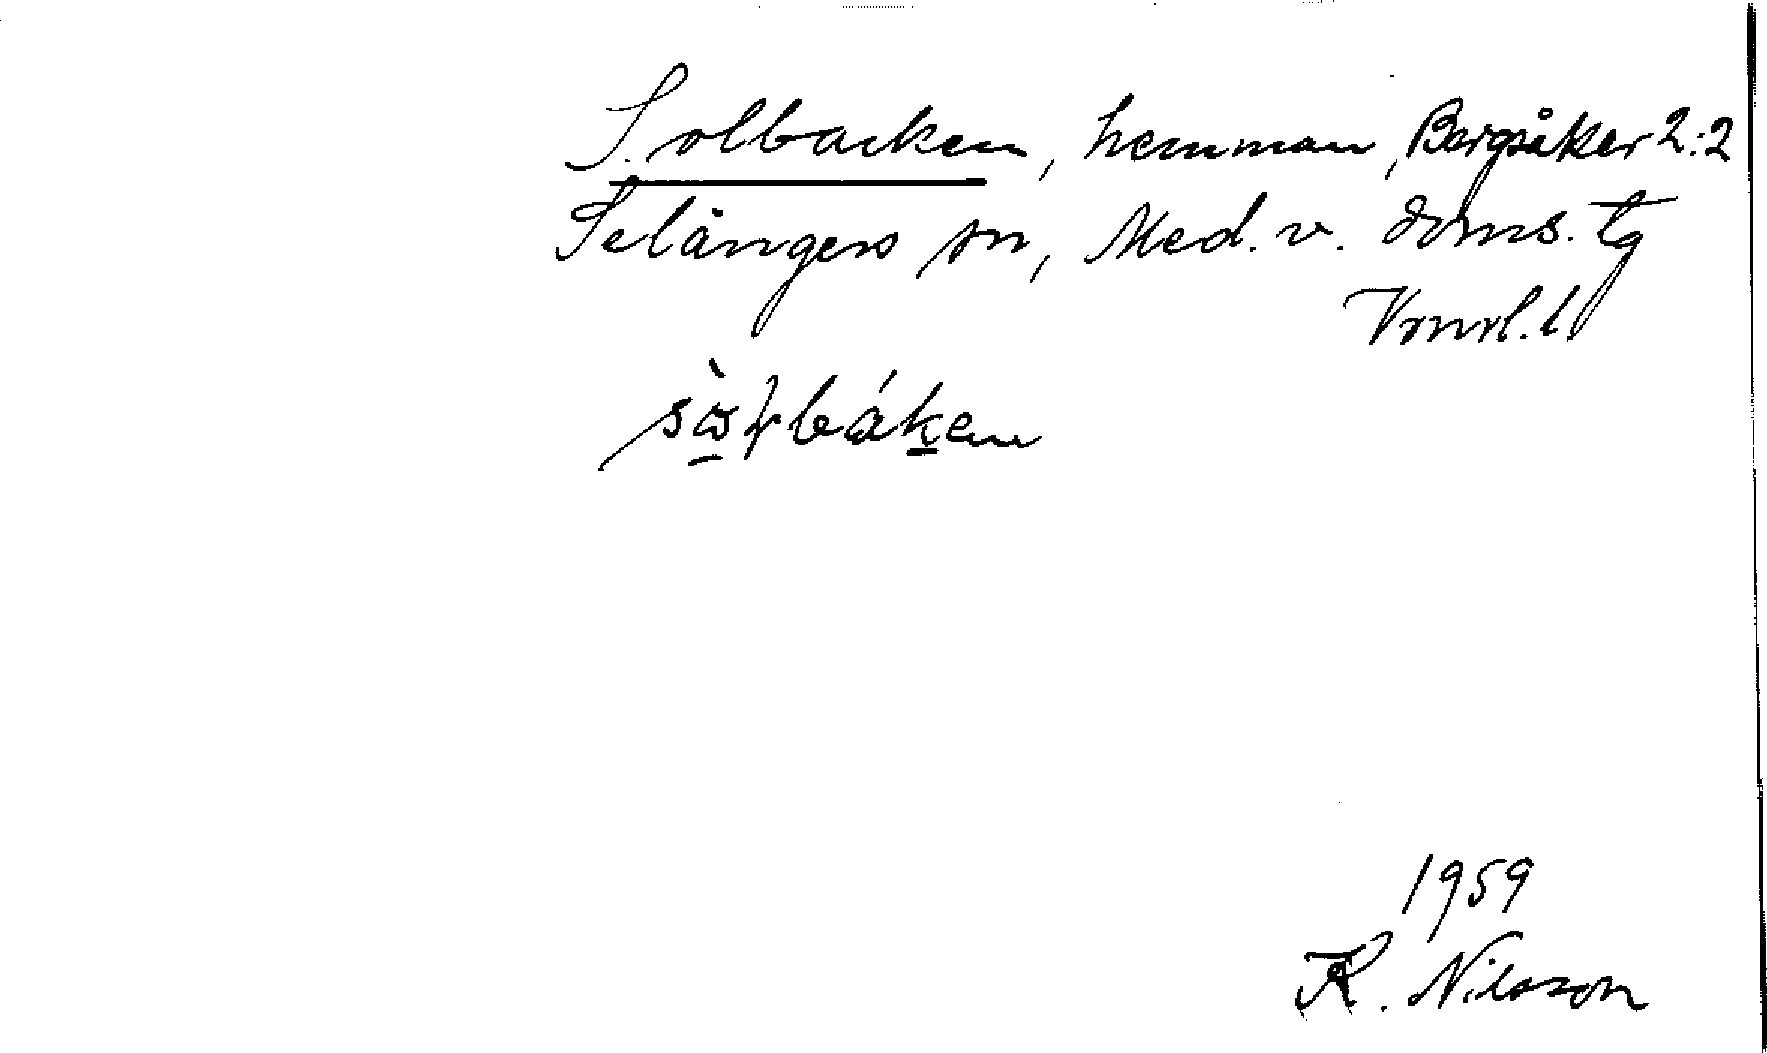 Solbacken, hemman, Bergsåker 2:2
Selångers sn, Med. v. doms. tg
Vrnrl. l.
1959
K. Nilsson